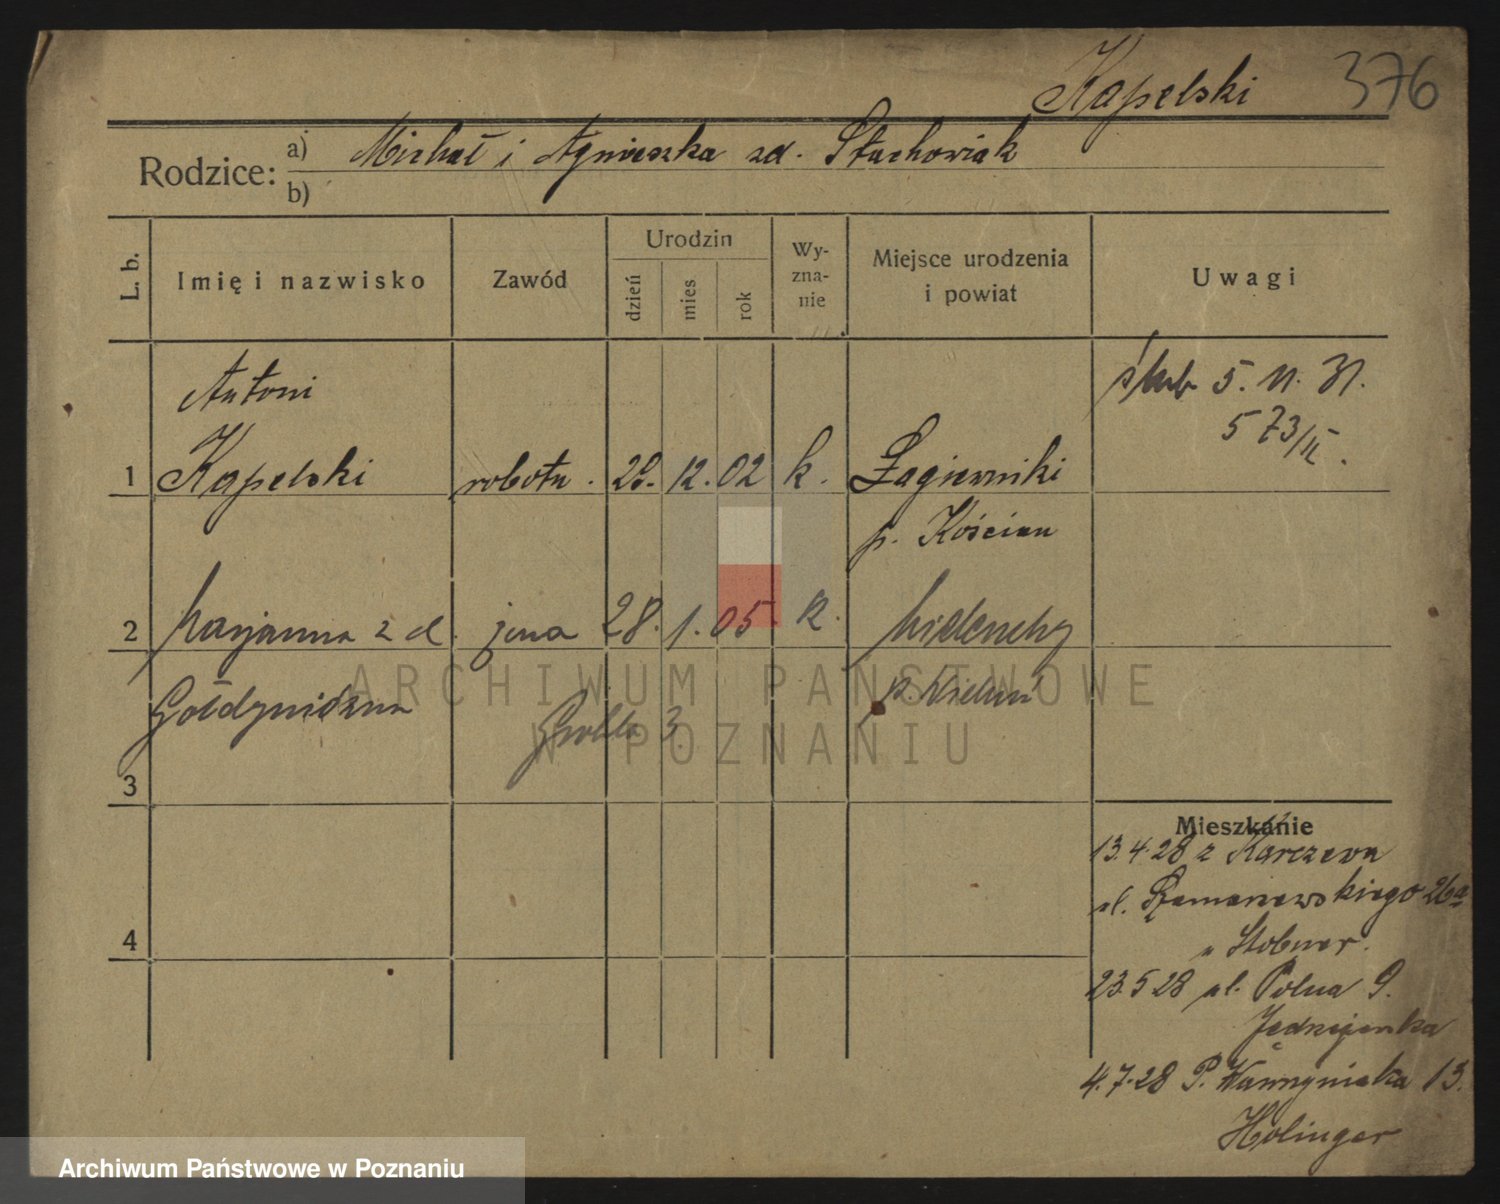 Kapelski 376
Rodzice: a) Michał i Agnieszka zd. Stachowiak
b)
L. b. Imię i nazwisko Zawód Urodzin dzień mies rok Wy-zna-nie Miejsce urodzenia i powiat Uwagi
Antoni ślub 5. 11. 31.
573/II.
1 Kapelski robotn. 29. 12. 02 k. Łagiewniki
p. Kościan
2 Marjanna z d. żona 28. 1. 05. k.
p. Wieluń
Grobla 3.
3
Mieszkanie
13.4.28 z Karczewa
ul. Szamarzewskiego 26a
u Stobner.
4
23.5.28 ul. Polna 9.
4.7.28 P. Wawrzyniaka 13.
Holinger
ARCHIWUM PAŃSTWOWE
W POZNANIU
Archiwum Państwowe w Poznaniu